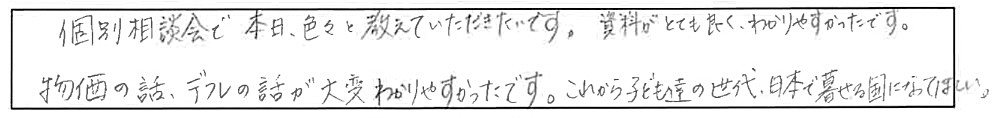 個別相談会で本日、色々と教えていただきたいです。資料がとても良く、わかりやすかったです。
物価の話、デフレの話が大変わかりやすかったです。これから子ども達の世代、日本で暮せる国になってほしい。